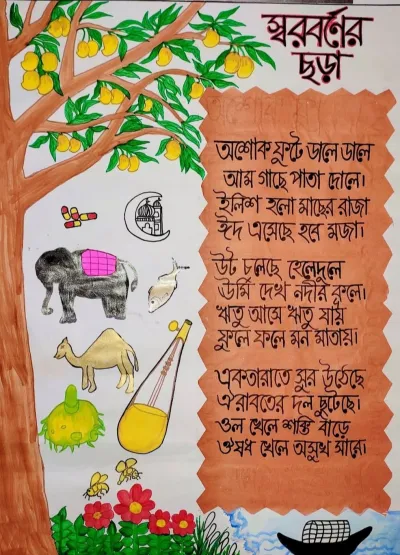 স্বরবর্ণের
ছড়া
অশোক ফুটে ডালে ডালে
আম গাছে পাতা দোলে।
ইলিশ হলো মাছের রাজা
ঈদ এসেছে হবে মজা।
উট চলেছে হেলেদুলে
ঊর্মি দেখ নদীর কূলে।
ঋতু আসে ঋতু যায়
ফুলে ফলে মন মাতায়।
একতারাতে সুর উঠেছে
ঐরাবতের দল ছুটেছে।
ওল খেলে শক্তি বাড়ে
ঔষধ খেলে অসুখ সারে।